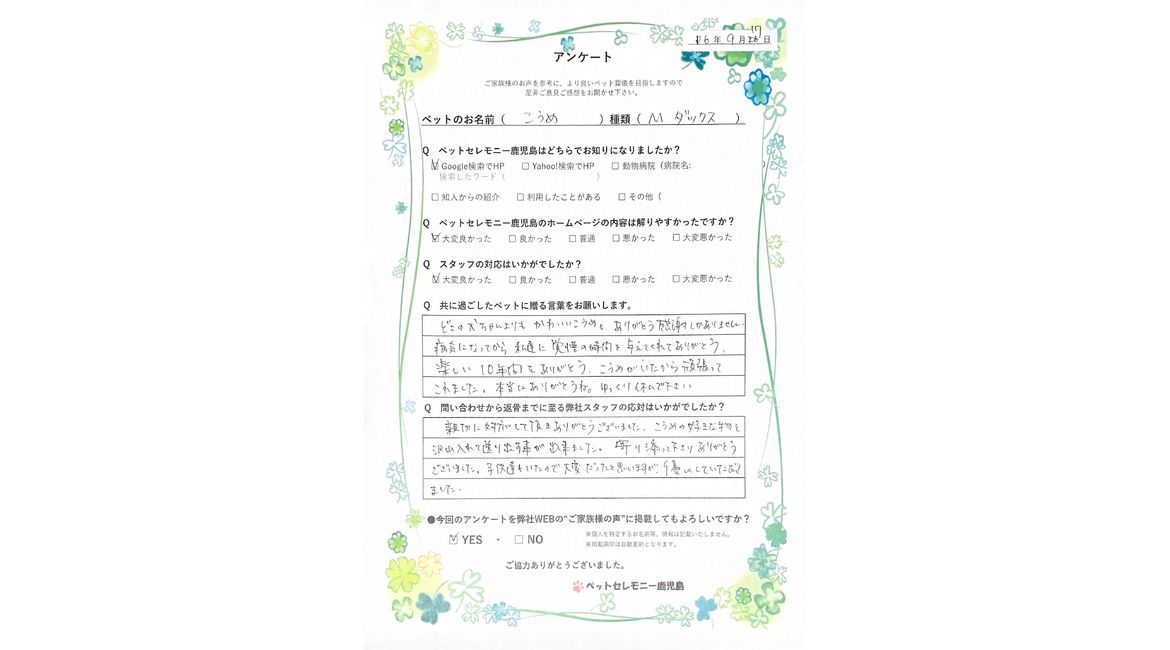 R6年9月17日
アンケート
ご家族様のお声を参考に、より良いペット葬儀を目指しますので
是非ご意見ご感想をお聞かせ下さい。
ペットのお名前（ こうめ ）種類（ M ダックス ）
Q ペットセレモニー鹿児島はどちらでお知りになりましたか？
☑ Google検索でHP □ Yahoo!検索でHP □ 動物病院（病院名: ）
検索したワード（ ）
□ 知人からの紹介 □ 利用したことがある □ その他（
Q ペットセレモニー鹿児島のホームページの内容は解りやすかったですか？
☑ 大変良かった □ 良かった □ 普通 □ 悪かった □ 大変悪かった
Q スタッフの対応はいかがでしたか？
☑ 大変良かった □ 良かった □ 普通 □ 悪かった □ 大変悪かった
Q 共に過ごしたペットに贈る言葉をお願いします。
どこの犬ちゃんよりも かわいいこうめ。ありがとう 感謝しかありません。
病気になってから 私達に 覚悟の時間を 与えてくれてありがとう。
楽しい 10年間を ありがとう。こうめがいたから 頑張って
これました。本当にありがとうね。ゆっくり休んで下さい
Q 問い合わせから返骨までに至る弊社スタッフの応対はいかがでしたか？
親切に 対応して頂き ありがとうございました。こうめの好きな物を
沢山入れて送り出す事が 出来ました。寄り添って下さり ありがとう
ございました。子供達もいたので 大変だったと思いますが 優しくしていただき
ました。
●今回のアンケートを弊社WEBの“ご家族様の声”に掲載してもよろしいですか？
☑ YES ・ □ NO
※個人を特定するお名前等、情報は記載いたしません。
※掲載期間は自動更新となります。
ご協力ありがとうございました。
ペットセレモニー鹿児島